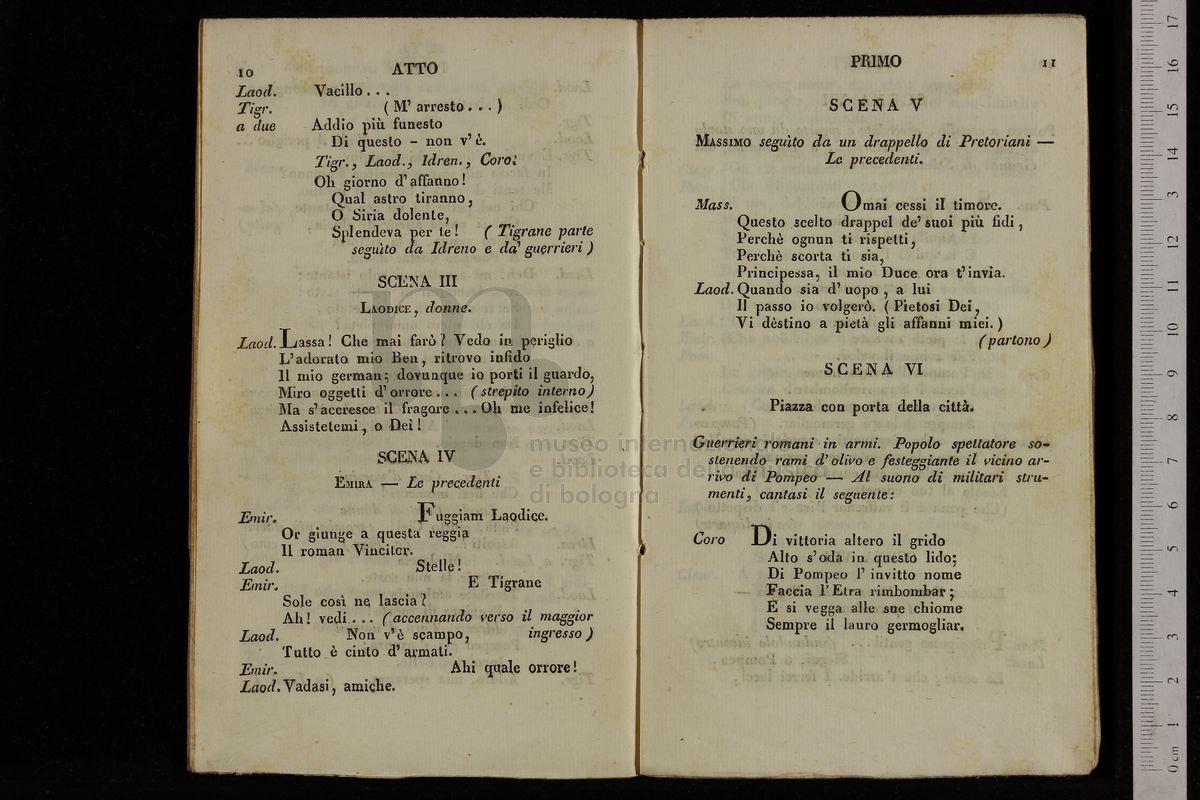 10 ATTO
Laod. Vacillo . . .
Tigr. ( M' arresto . . . )
a due Addio più funesto
Di questo - non v' è.
Tigr., Laod., Idren., Coro.
Oh giorno d' affanno!
Qual astro tiranno,
O Siria dolente,
Splendeva per te! ( Tigrane parte
seguìto da Idreno e da' guerrieri )
SCENA III
LAODICE, donne.
Laod. Lassa! Che mai farò? Vedo in periglio
L' adorato mio Ben, ritrovo infido
Il mio german; dovunque io porti il guardo,
Miro oggetti d' orrore . . . ( strepito interno )
Ma s' accresce il fragore . . . Oh me infelice!
Assistetemi, o Dei!
SCENA IV
EMIRA — Le precedenti
Emir. Fuggiam Laodice.
Or giunge a questa reggia
Il roman Vincitor.
Laod. Stelle!
Emir. E Tigrane
Sole così ne lascia?
Ah! vedi . . . ( accennando verso il maggior
Laod. Non v' è scampo, ingresso )
Tutto è cinto d' armati.
Emir. Ahi quale orrore!
Laod. Vadasi, amiche.
PRIMO 11
SCENA V
MASSIMO seguìto da un drappello di Pretoriani —
Le precedenti.
Mass. Omai cessi il timore.
Questo scelto drappel de' suoi più fidi,
Perchè ognun ti rispetti,
Perchè scorta ti sia,
Principessa, il mio Duce ora t' invia.
Laod. Quando sia d' uopo, a lui
Il passo io volgerò. ( Pietosi Dei,
Vi dèstino a pietà gli affanni miei. )
( partono )
SCENA VI
Piazza con porta della città.
Guerrieri romani in armi. Popolo spettatore so-
stenendo rami d' olivo e festeggiante il vicino ar-
rivo di Pompeo — Al suono di militari stru-
menti, cantasi il seguente:
Coro Di vittoria altero il grido
Alto s' oda in questo lido;
Di Pompeo l' invitto nome
Faccia l' Etra rimbombar;
E si vegga alle sue chiome
Sempre il lauro germogliar.
museo internazionale
e biblioteca della musica
di bologna
0 cm 1 2 3 4 5 6 7 8 9 10 11 12 13 14 15 16 17